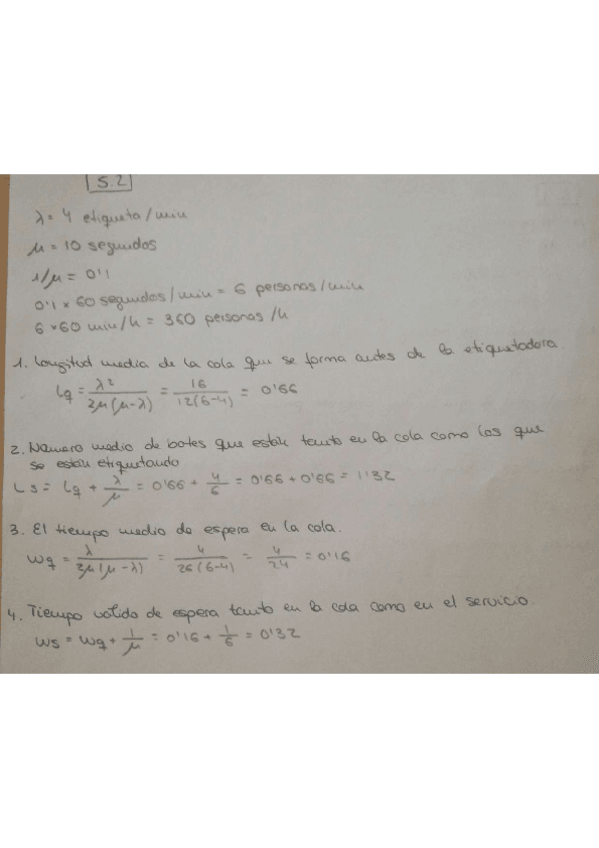 5.2
λ = 4 etiqueta/min
μ = 10 segundos
1/μ = 0'1
0'1 x 60 segundos/min = 6 personas/min
6 x 60 min/h = 360 personas/h
1. Longitud media de la cola que se forma antes de la etiquetadora.
Lq = λ²/2μ(μ-λ) = 16/12(6-4) = 0'66
2. Número medio de botes que están tanto en la cola como los que
se están etiquetando
Ls = Lq + λ/μ = 0'66 + 4/6 = 0'66 + 0'66 = 1'32
3. El tiempo medio de espera en la cola.
Wq = λ/2μ(μ-λ) = 4/26(6-4) = 4/24 = 0'16
4. Tiempo valido de espera tanto en la cola como en el servicio.
Ws = Wq + 1/μ = 0'16 + 1/6 = 0'32